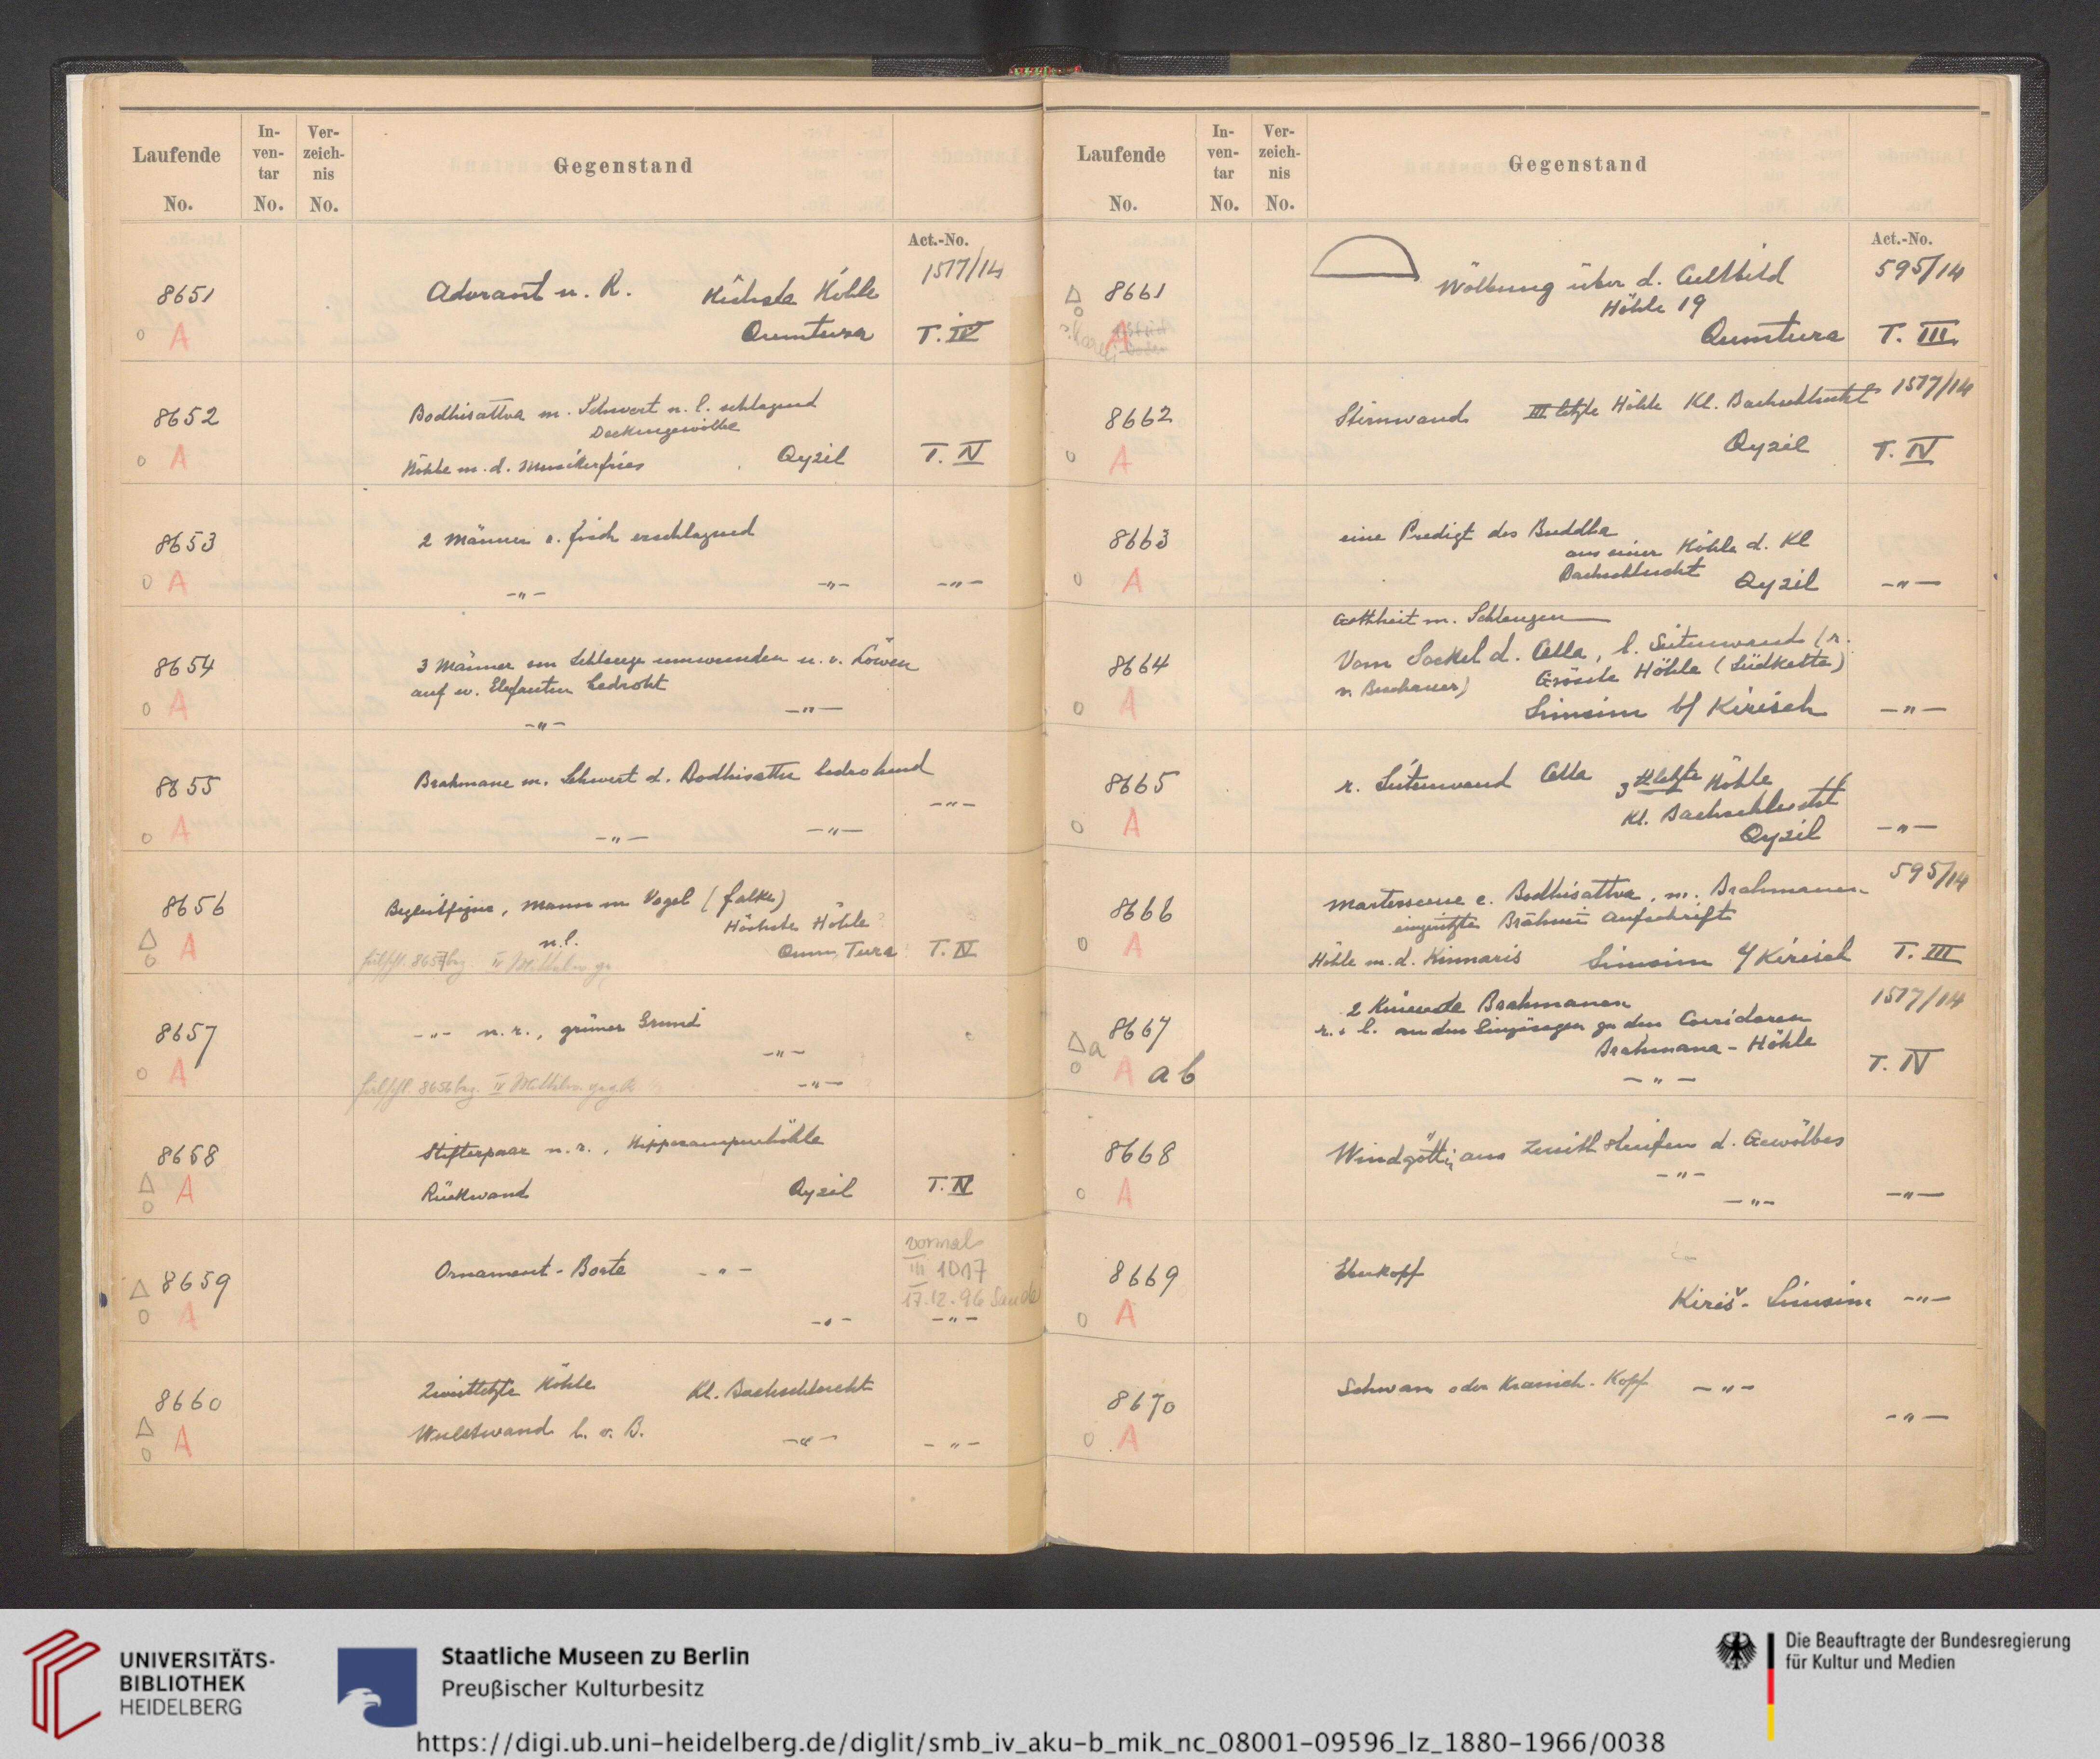 Laufende No.
In-ven-tar No.
Ver-zeich-nis No.
Gegenstand
Act.-No.
8651
Adorant n. R. Höchste Höhle
1577/14
o A
Qumtura T. IV
8652
Bodhisattva m. Schwert n. l. schlagend
Deckengewölbe
o A
Höhle m. d. Musikerfries Qyzil T. IV
8653
2 Männer e. Fisch erschlagend
o A
-"- -"- -"-
8654
3 Männer von Schlange umwunden u. v. Löwen
auf w. Elefanten bedroht
o A
-"- -"-
8655
Brahmane m. Schwert d. Bodhisattva bedrohend
-"-
o A
-"- -"-
8656
Begleitfigur, Mann m. Vogel (Falke)
Höchste Höhle
△ o A
n. l. Qum Tura T. IV
8657
-"- n. r., grüner Grund
-"-
o A
-"-
8658
Stifterpaar n. r., Hippocampenhöhle
△ o A
Rückwand Qyzil T. IV
8659
Ornament-Borte -"-
vormals
III 1017
17.12.96 Sander
△ o A
-"- -"-
8660
Zweitletzte Höhle Kl. Bachschlucht
△ o A
l. v. B. -"- -"-
Laufende No.
In-ven-tar No.
Ver-zeich-nis No.
Gegenstand
Act.-No.
△ o 8661
Wölbung über d. Cultbild
595/14
Höhle 19
A
Qumtura T. III
8662
Stirnwand III letzte Höhle Kl. Bachschlucht 1577/14
o A
Qyzil T. IV
8663
eine Predigt des Buddha
aus einer Höhle d. Kl
o A
Bachschlucht Qyzil -"-
Gottheit m. Schlangen
8664
Vom Sockel d. Cella, l. Seitenwand (r.
v. Beschauer) Grösste Höhle (Südkette)
o A
Simsim b/ Kirisch -"-
8665
r. Seitenwand Cella 3 letzte Höhle
Kl. Bachschlucht
o A
Qyzil -"-
8666
Marterscene e. Bodhisattva, m. Brahmanen
595/14
eingeritzte Brāhmī Aufschrift
o A
Höhle m. d. Kinnaris Simsim b/ Kirisch T. III
8667
2 Knieende Brahmanen
1517/14
r. & l. an den Eingängen zu den Corridoren
Brahmana-Höhle
△a o A a b
-"- T. IV
8668
Windgött. aus Zenith Streifen d. Gewölbes
-"-
o A
-"- -"-
8669
Eberkopf
o A
Kiriš-Simsim -"-
8670
Schwan oder Kranich-Kopf -"-
o A
-"-
UNIVERSITÄTS-
BIBLIOTHEK
HEIDELBERG
Staatliche Museen zu Berlin
Preußischer Kulturbesitz
Die Beauftragte der Bundesregierung
für Kultur und Medien
https://digi.ub.uni-heidelberg.de/diglit/smb_iv_aku-b_mik_nc_08001-09596_lz_1880-1966/0038